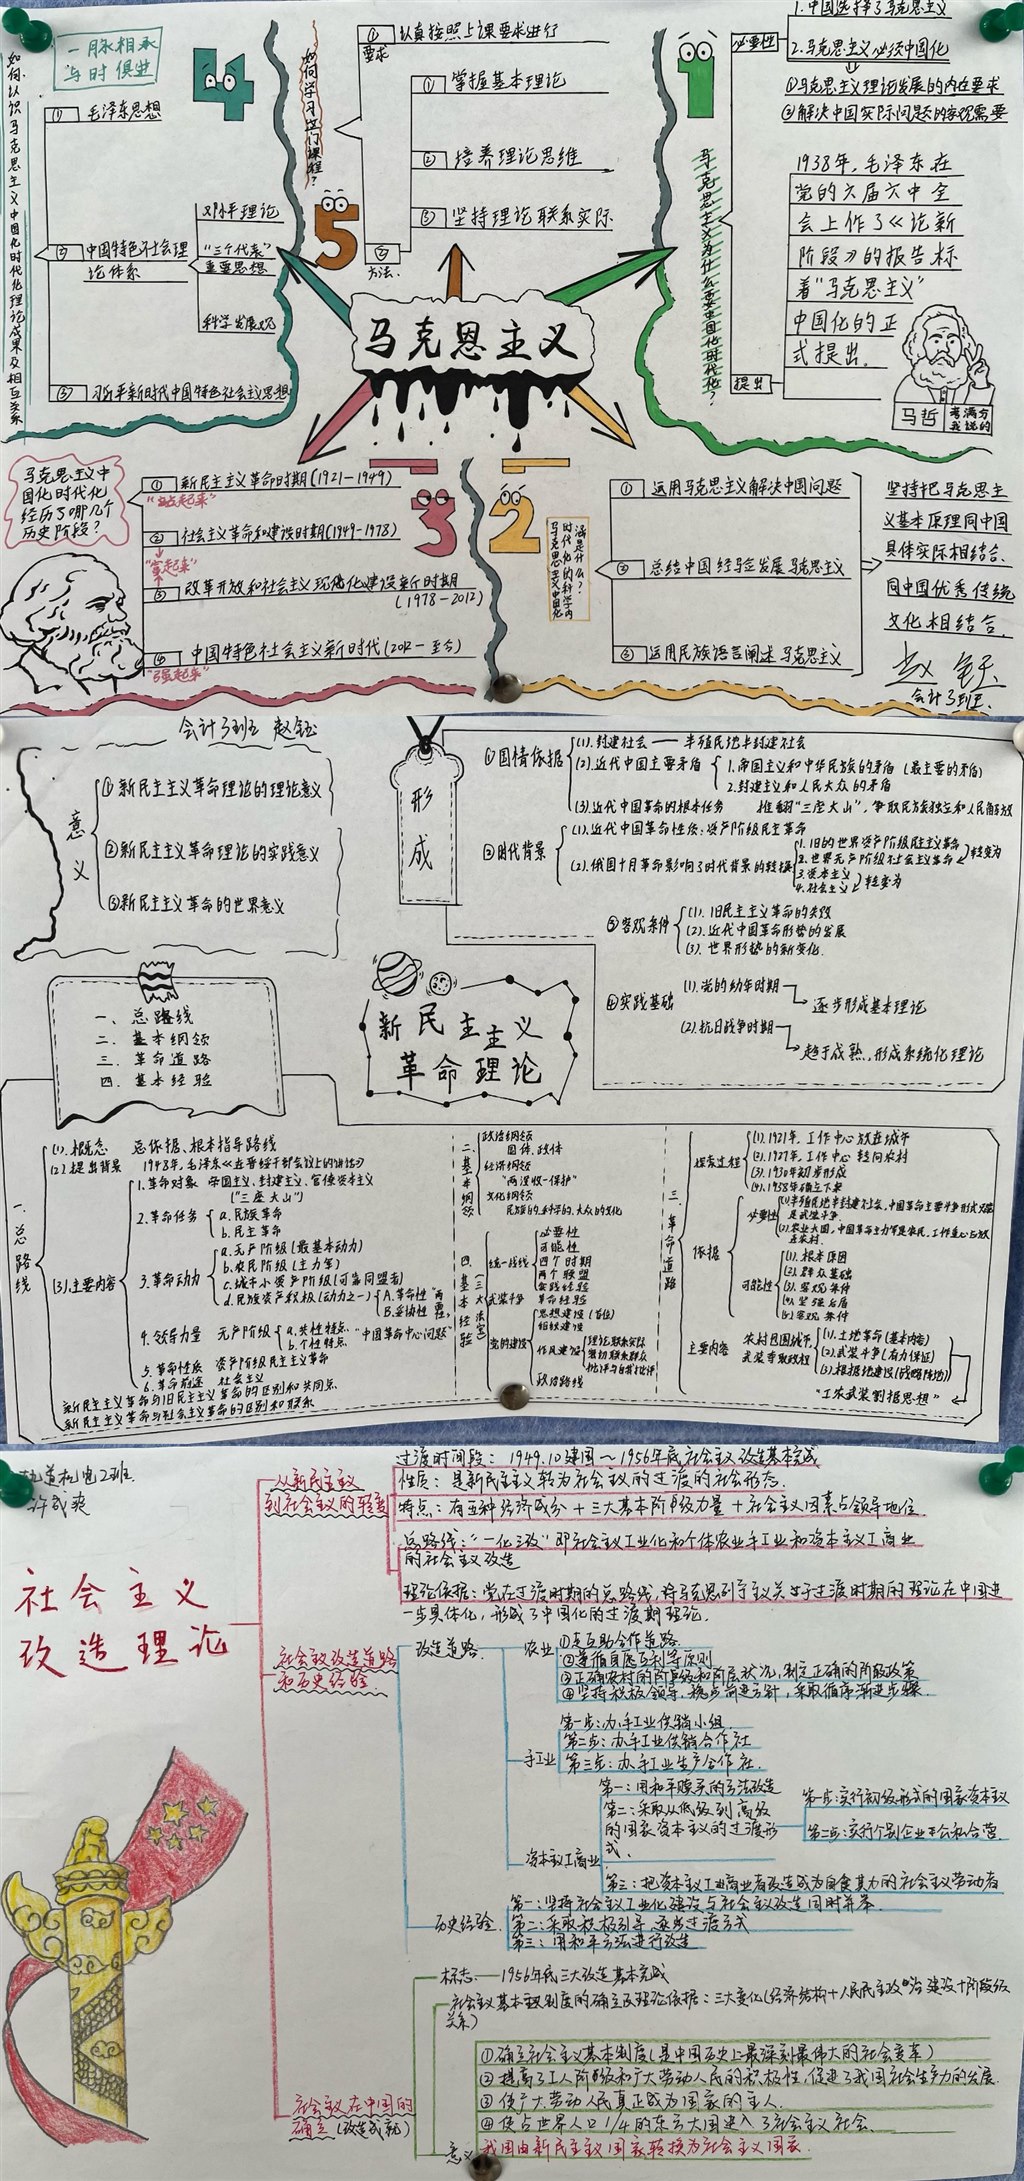 一脉相承
与时俱进
如何认识马克思主义中国化时代化理论成果及相互关系
4
① 毛泽东思想
② 中国特色社会理
论体系
邓小平理论
“三个代表”
重要思想
科学发展观
③ 习近平新时代中国特色社会主义思想
如何学习这门课程?
5
① 认真按照上课要求进行
要求
① 掌握基本理论
② 培养理论思维
③ 坚持理论联系实际
②
方法.
马克思主义
1
马克思主义为什么要中国化时代化?
必要性
1.中国选择了马克思主义
2.马克思主义必须中国化
①马克思主义理论发展的内在要求
②解决中国实际问题的客观需要
提出
1938年,毛泽东在
党的六届六中全
会上作了《论新
阶段》的报告标
着“马克思主义”
中国化的正
式提出.
马哲
考满分
我说的
马克思主义中
国化时代化
经历了哪几个
历史阶段?
3
① 新民主主义革命时期(1921-1949)
“站起来”
② 社会主义革命和建设时期(1949-1978)
“富起来”
③ 改革开放和社会主义现代化建设新时期
(1978-2012)
④ 中国特色社会主义新时代(2012-至今)
“强起来”
2
马克思主义中国化
时代化的科学内
涵是什么?
① 运用马克思主义解决中国问题
② 总结中国经验发展马克思主义
③ 运用民族语言阐述马克思主义
坚持把马克思主
义基本原理同中国
具体实际相结合、
同中国优秀传统
文化相结合.
赵钰
会计3班.
会计3班 赵钰
意义
①新民主主义革命理论的理论意义
②新民主主义革命理论的实践意义
③新民主主义革命的世界意义
形成
①国情依据
(1).封建社会——半殖民地半封建社会
(2).近代中国主要矛盾
1.帝国主义和中华民族的矛盾(最主要的矛盾)
2.封建主义和人民大众的矛盾
(3).近代中国革命的根本任务 推翻“三座大山”,争取民族独立和人民解放
②时代背景
(1).近代中国革命性质:资产阶级民主革命
(2).俄国十月革命影响了时代背景的转换
1.旧的世界资产阶级民主革命
2.世界无产阶级社会主义革命
转变为
3.资本主义
4.社会主义
转变为
③客观条件
(1).旧民主主义革命的失败
(2).近代中国革命形势的发展
(3).世界形势的新变化.
④实践基础
(1).党的幼年时期
逐步形成基本理论
(2).抗日战争时期
趋于成熟,形成系统化理论
一、总路线
二、基本纲领
三、革命道路
四、基本经验
新民主主义
革命理论
一、总路线
(1).概念 总依据、根本指导路线
(2).提出背景 1948年,毛泽东《在晋绥干部会议上的讲话》
(3).主要内容
1.革命对象 帝国主义、封建主义、官僚资本主义
(“三座大山”)
2.革命任务
a.民族革命
b.民主革命
3.革命动力
a.无产阶级(最基本动力)
b.农民阶级(主力军)
c.城市小资产阶级(可靠同盟者)
d.民族资产阶级(动力之一)
A.革命性
B.妥协性
4.领导力量 无产阶级
a.共性特点
b.个性特点
“中国革命中心问题”
5.革命性质 资产阶级民主主义革命
6.革命前途 社会主义
新民主主义革命与旧民主主义革命的区别和共同点
新民主主义革命与社会主义革命的区别和联系
二、基本纲领
政治纲领
国体、政体
经济纲领
“两没收一保护”
文化纲领
民族的、科学的、大众的文化
四、基本经验(三大法宝)
统一战线
必要性
可能性
四个时期
两个联盟
实践经验
武装斗争
革命经验
党的建设
思想建设(首位)
组织建设
作风建设
理论联系实际
密切联系群众
批评与自我批评
政治路线
三、革命道路
探索过程
(1).1921年,工作中心放在城市
(2).1927年,工作中心转向农村
(3).1930年初步形成
(4).1938年确立下来
依据
必要性
(1)半殖民地半封建社会,中国革命主要斗争形式只能
是武装斗争.
(2).农业大国,中国革命主力军是农民,工作重心应放
在农村.
可能性
(1).根本原因
(2).群众基础
(3).客观条件
(4).坚强后盾
(5).客观条件
主要内容
农村包围城市,
武装夺取政权
(1).土地革命(基本内容)
(2).武装斗争(有力保证)
(3).根据地建设(战略阵地)
“工农武装割据思想”
轨道机电2班.
许武爽
社会主义
改造理论
从新民主主义
到社会主义的转变
过渡时间段: 1949.10建国~1956年底社会主义改造基本完成
性质: 是新民主主义转为社会主义的过渡的社会形态.
特点:有五种经济成分+三大基本阶级力量+社会主义因素占领导地位.
总路线:“一化三改”即社会主义工业化和个体农业手工业和资本主义工商业
的社会主义改造
理论依据:党在过渡时期的总路线,将马克思列宁主义关于过渡时期的理论在中国进
一步具体化,形成了中国化的过渡期理论.
社会主义改造道路
和历史经验
改造道路
农业
①走互助合作道路.
②遵循自愿互利等原则
③正确农村的阶级和阶层状况,制定正确的阶级政策
④坚持积极领导,稳步前进方针,采取循序渐进步骤.
手工业
第一步:办手工业供销小组.
第二步:办手工业供销合作社
第三步:办手工业生产合作社.
资本主义工商业
第一:用和平赎买的方法改造
第二:采取从低级到高级
的国家资本主义的过渡形
式.
第一步:实行初级形式的国家资本主义
第二步:实行个别企业公私合营.
第三:把资本主义工商业者改造成为自食其力的社会主义劳动者
历史经验
第一:坚持社会主义工业化建设与社会主义改造同时并举.
第二:采取积极引导、逐步过渡方式
第三:用和平方法进行改造
社会主义在中国的
确立(改造成就)
标志:——1956年底三大改造基本完成
社会主义基本制度的确立及理论依据:三大变化(经济结构+人民民主政治建设+阶级
关系)
意义
①确立社会主义基本制度(是中国历史上最深刻最伟大的社会变革)
②提高了工人阶级和广大劳动人民的积极性,促进了我国社会生产力的发展.
③使广大劳动人民真正成为国家的主人.
④使占世界人口1/4的东方大国进入了社会主义社会.
我国由新民主主义国家转换为社会主义国家.